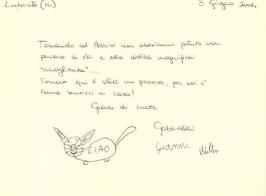 Limbiate (MI) 8 Giugno 2004
Tornando ad Assisi non abbiamo potuto non
pensare a voi e alla vostra magnifica
"accoglienza"....
Tornare qui è stato un piacere, per noi è
come esserci a casa!
Grazie di cuore
CIAO